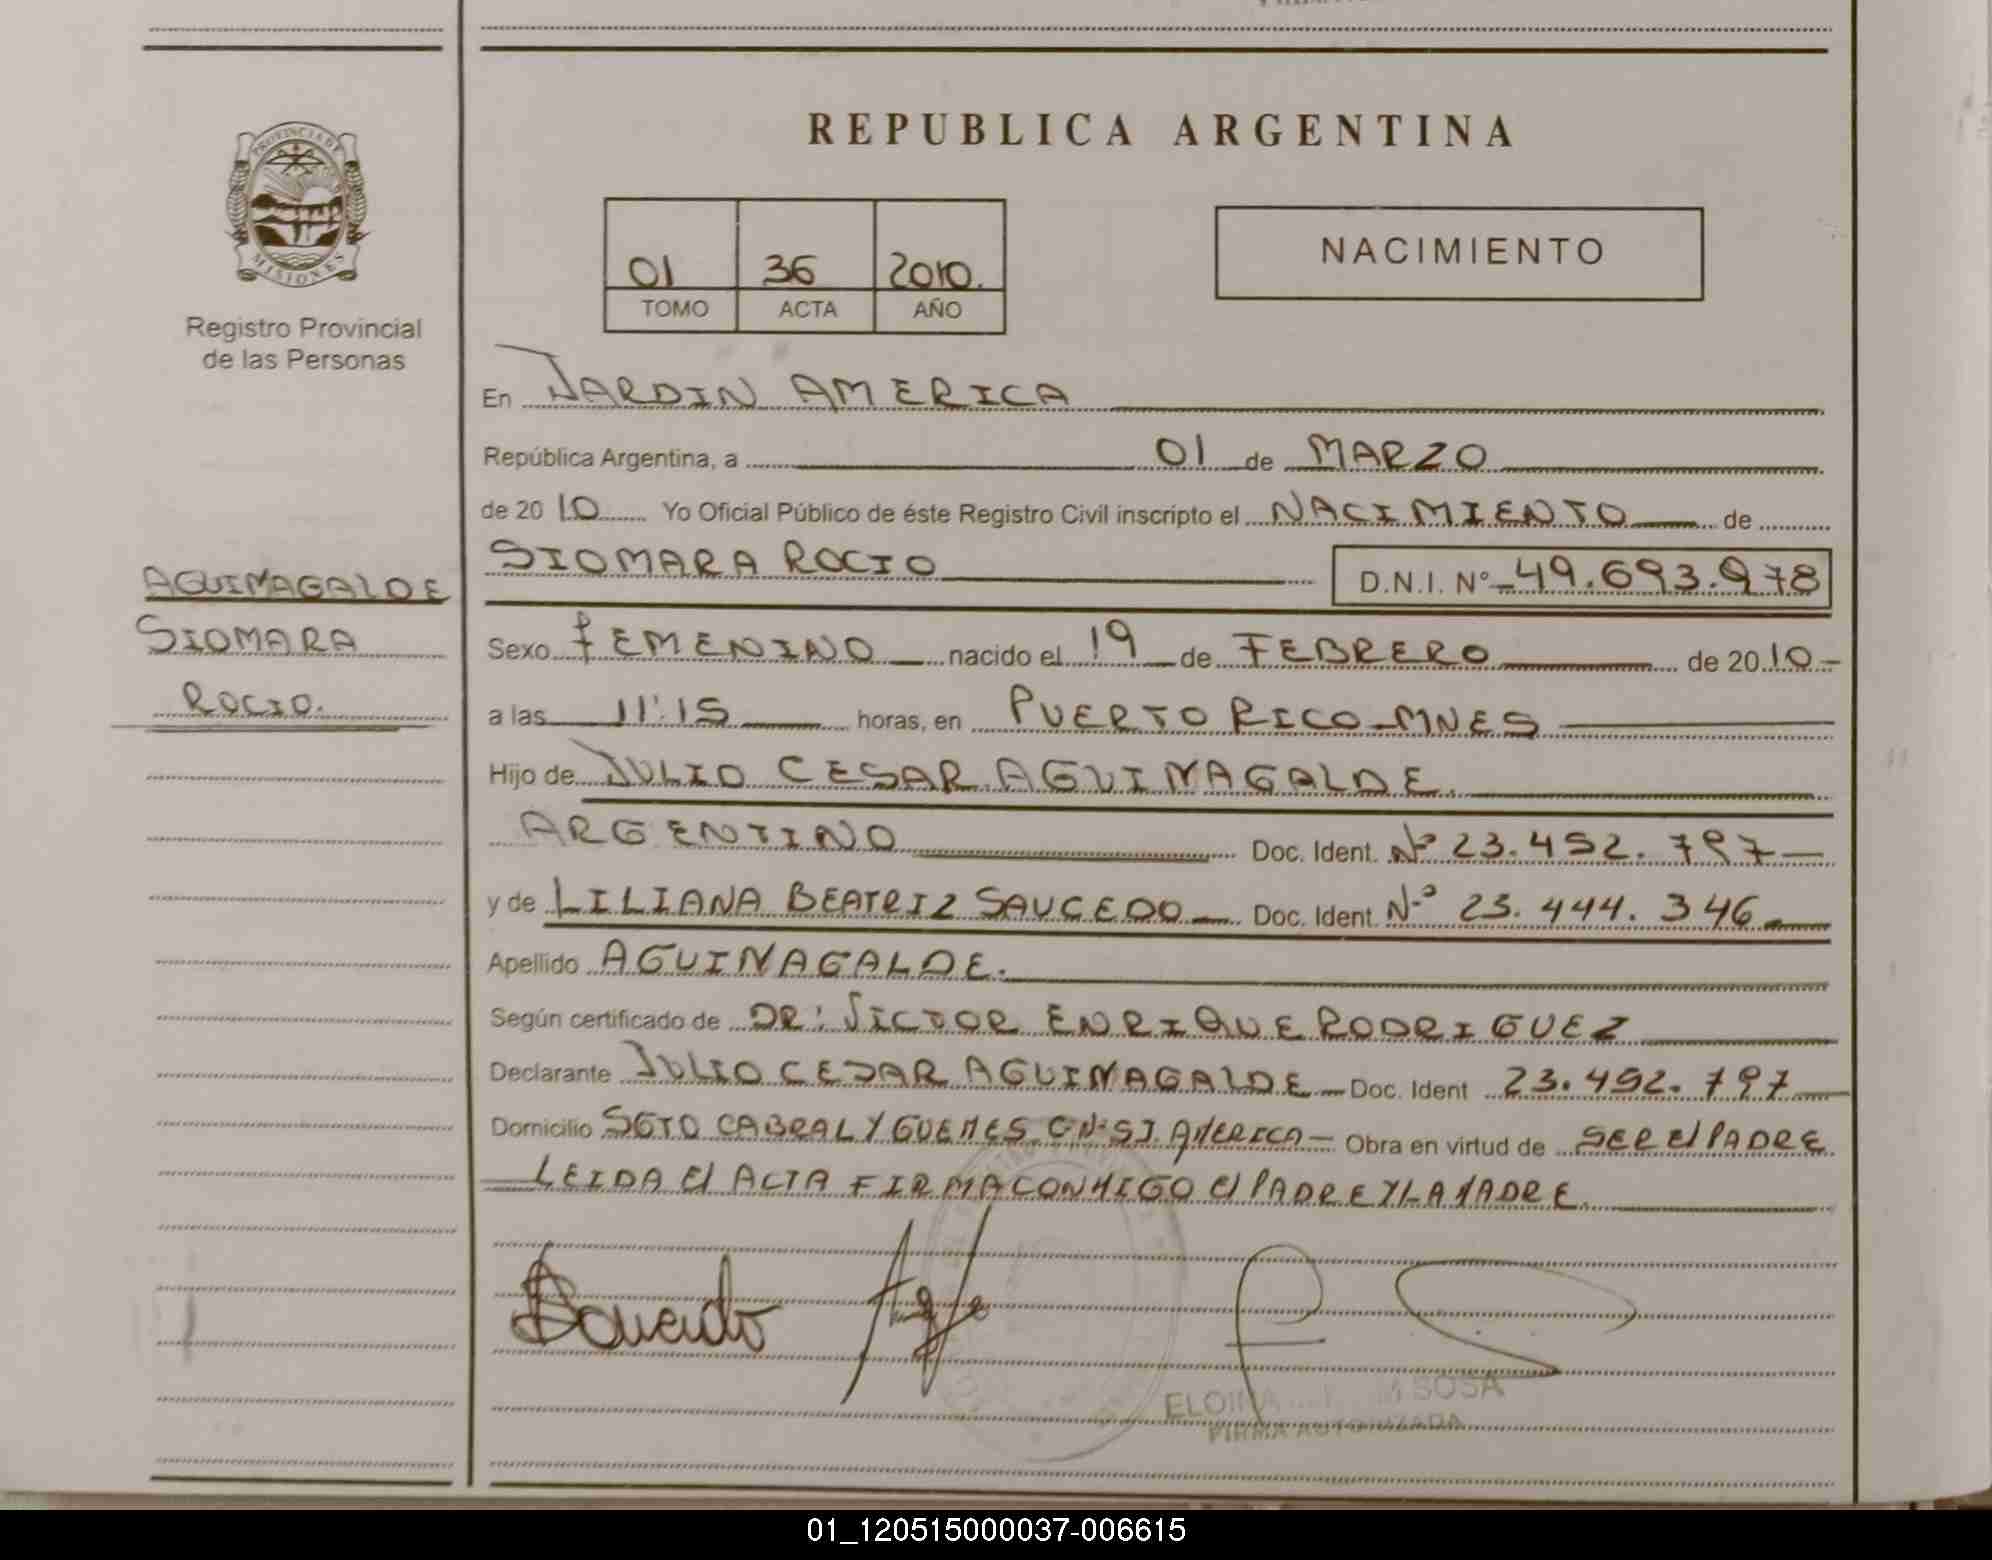 PROVINCIA DE
MISIONES
Registro Provincial
de las Personas
AGUINAGALDE
SIOMARA
ROCIO.
REPUBLICA ARGENTINA
01 36 2010.
TOMO ACTA AÑO
NACIMIENTO
En JARDIN AMERICA
República Argentina, a 01 de MARZO
de 20 10 Yo Oficial Público de éste Registro Civil inscripto el NACIMIENTO de
SIOMARA ROCIO D.N.I. Nº 49.693.978
Sexo FEMENINO nacido el 19 de FEBRERO de 20 10-
a las 11:15 horas, en PUERTO RICO-MNES
Hijo de JULIO CESAR AGUINAGALDE.
ARGENTINO Doc. Ident. Nº 23.492.797-
y de LILIANA BEATRIZ SAUCEDO Doc. Ident. Nº 23.444.346
Apellido AGUINAGALDE.
Según certificado de DR: VICTOR ENRIQUE RODRIGUEZ
Declarante JULIO CESAR AGUINAGALDE Doc. Ident 23.492.797
Domicilio SGTO CABRAL Y GUEMES AMERICA- Obra en virtud de SER El PADRE
LEIDA El ACTA FIRMA CONMIGO El PADRE Y LA MADRE.
Saucedo
SOSA
FIRMA AUTORIZADA
01_120515000037-006615